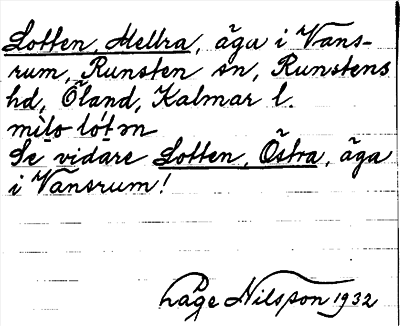 Lotten, Mellra, äga i Vans-
rum, Runsten sn, Runstens
hd, Öland, Kalmar l.
mìlo lót ən
Se vidare Lotten, Östra, äga
i Vansrum!
Åage Nilsson 1932